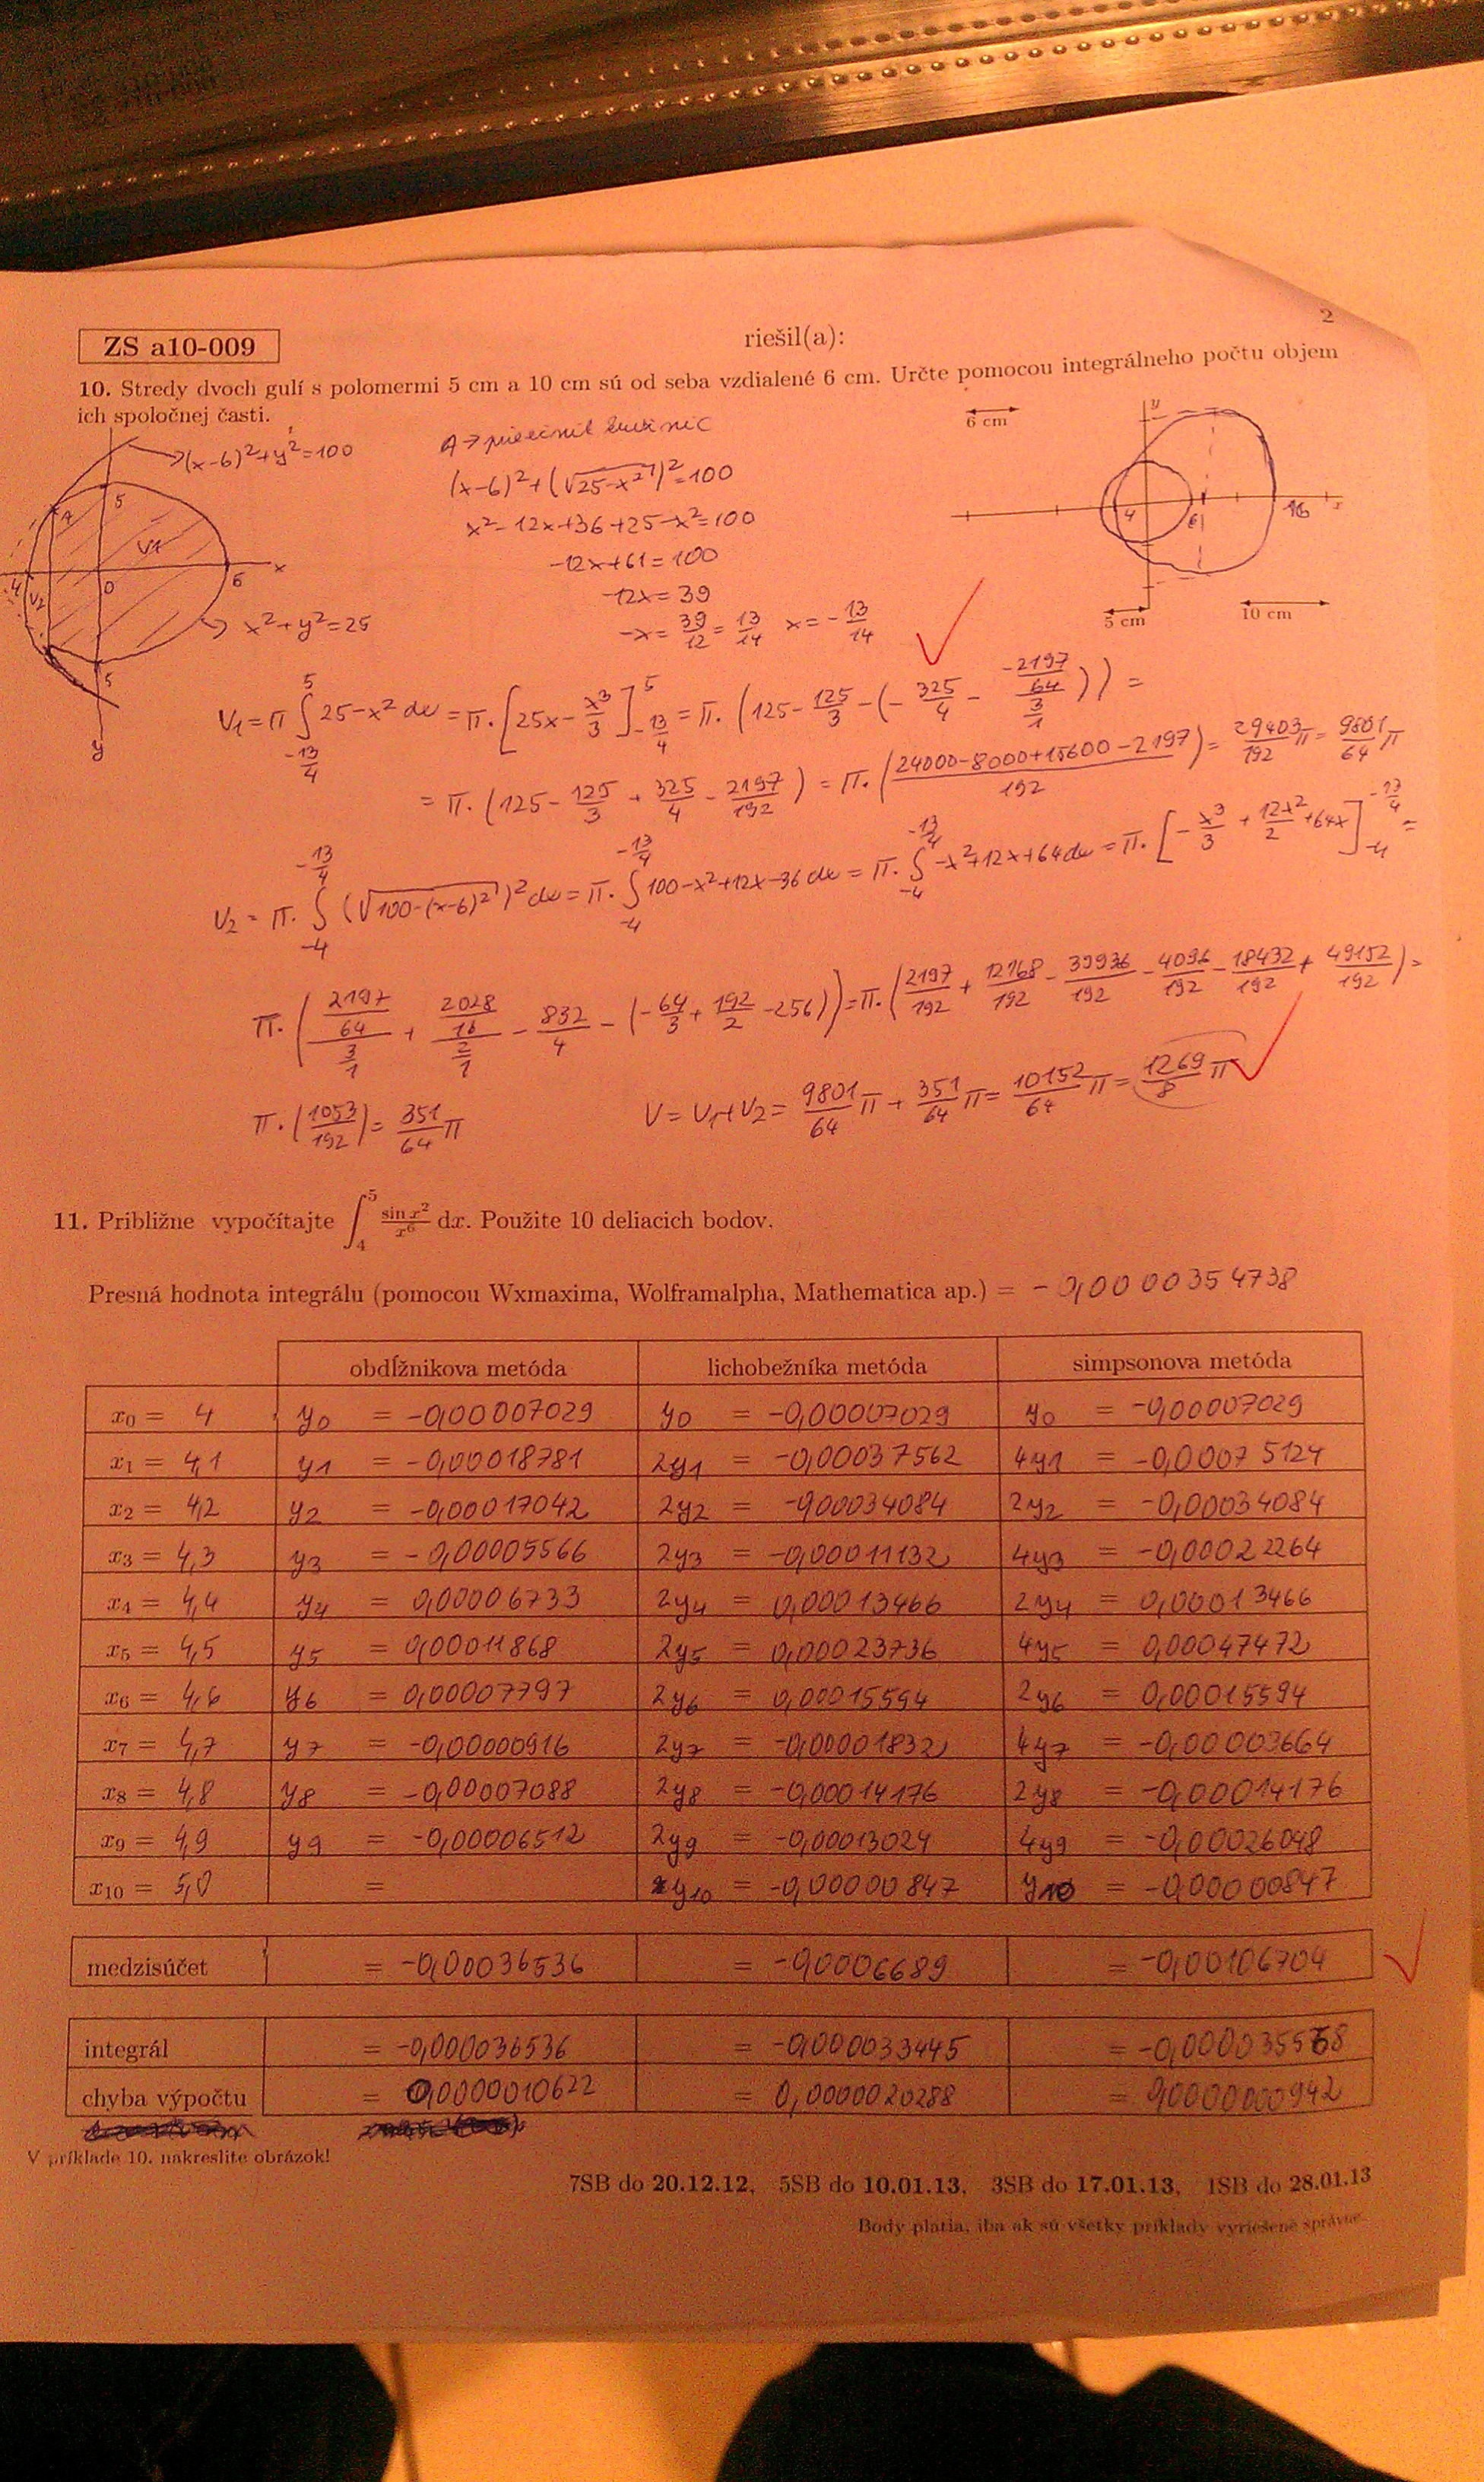 2
ZS a10-009
riešil(a):
10. Stredy dvoch gulí s polomermi 5 cm a 10 cm sú od seba vzdialené 6 cm. Určte pomocou integrálneho počtu objem
ich spoločnej časti.
(x-6)²+y²=100
5
A
V1
0
x
6
4
V2
x²+y²=25
5
y
A →
(x-6)²+(√25-x²)²=100
x²-12x+36+25-x²=100
-12x+61=100
-12x=39
-x=39/12=13/14 x=-13/14
6 cm
y
4
6
16
x
5 cm
10 cm
V1=π∫_{-13/4}^{5} 25-x² dx=π.[25x-x³/3]_{-13/4}^{5}=π.(125-125/3-(-325/4-(-2197/64)/(3/1)))=
=π.(125-125/3+325/4-2197/192)=π.((24000-8000+15600-2197)/192)=29403/192π=9801/64π
V2=π.∫_{-4}^{-13/4}(√100-(x-6)²)²dx=π.∫_{-4}^{-13/4}100-x²+12x-36dx=π.∫_{-4}^{-13/4}-x²+12x+64dx=π.[-x³/3+12x²/2+64x]_{-4}^{-13/4}=
π.((2197/64)/(3/1)+(2028/16)/(2/1)-832/4-(-64/3+192/2-256))=π.(2197/192+12168/192-39936/192-4096/192-18432/192+49152/192)=
π.(1053/192)=351/64π
V=V1+V2=9801/64π+351/64π=10152/64π=1269/8π
11. Približne vypočítajte ∫_4^5 sin x²/x⁶ dx. Použite 10 deliacich bodov.
Presná hodnota integrálu (pomocou Wxmaxima, Wolframalpha, Mathematica ap.) = -0,0000354738
obdĺžnikova metóda lichobežníka metóda simpsonova metóda
x0 = 4 y0 = -0,00007029 y0 = -0,00007029 y0 = -0,00007029
x1 = 4,1 y1 = -0,00018781 2y1 = -0,00037562 4y1 = -0,00075124
x2 = 4,2 y2 = -0,00017042 2y2 = -0,00034084 2y2 = -0,00034084
x3 = 4,3 y3 = -0,00005566 2y3 = -0,00011132 4y3 = -0,00022264
x4 = 4,4 y4 = 0,00006733 2y4 = 0,00013466 2y4 = 0,00013466
x5 = 4,5 y5 = 0,00011868 2y5 = 0,00023736 4y5 = 0,00047472
x6 = 4,6 y6 = 0,00007797 2y6 = 0,00015594 2y6 = 0,00015594
x7 = 4,7 y7 = -0,00000916 2y7 = -0,00001832 4y7 = -0,00003664
x8 = 4,8 y8 = -0,00007088 2y8 = -0,00014176 2y8 = -0,00014176
x9 = 4,9 y9 = -0,00006512 2y9 = -0,00013024 4y9 = -0,00026048
x10 = 5,0 = y10 = -0,00000847 y10 = -0,00000847
medzisúčet = -0,00036536 = -0,0006689 = -0,00106704
integrál = -0,000036536 = -0,000033445 = -0,000035568
chyba výpočtu = 0,0000010622 = 0,0000020288 = 0,00000000942
V príklade 10. nakreslite obrázok!
7SB do 20.12.12, 5SB do 10.01.13, 3SB do 17.01.13, 1SB do 28.01.13
Body platia, iba ak sú všetky príklady vyriešené správne